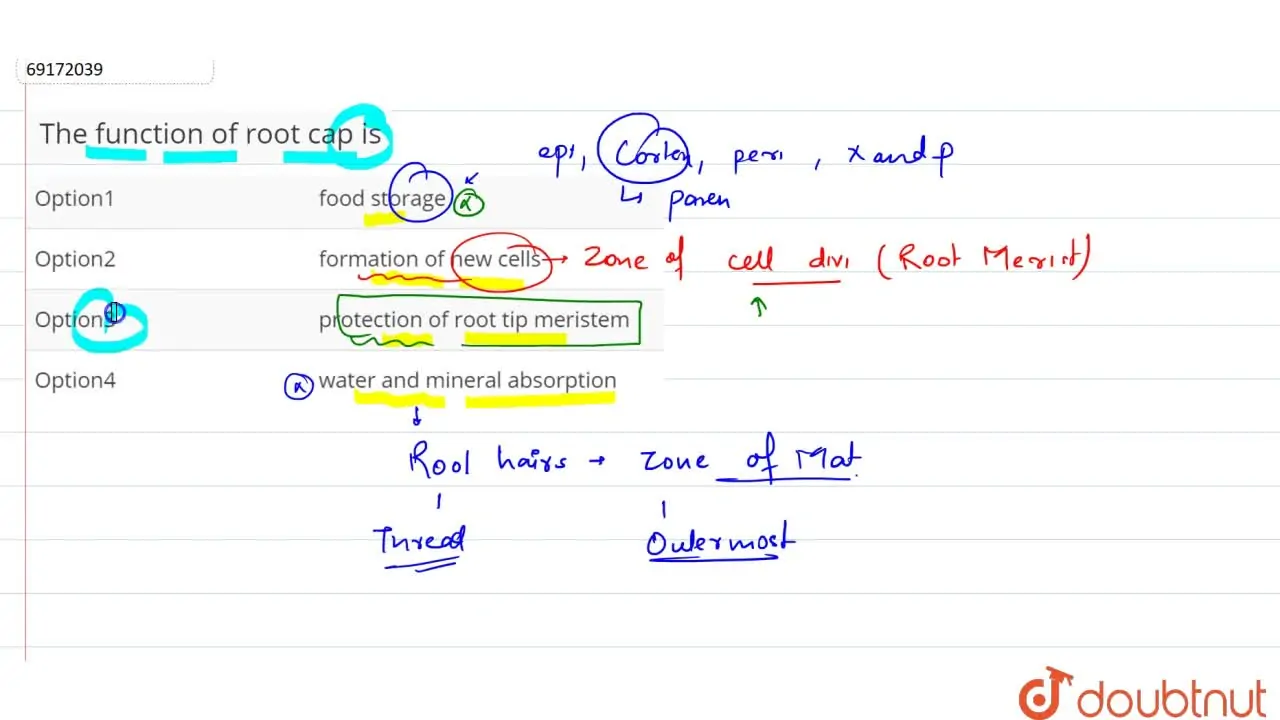 69172039
The function of root cap is
epi, Cortex, peri, x and p
Option1 food storage x
↳ paren
Option2 formation of new cells → Zone of cell divi (Root Merist)
↑
Option3 protection of root tip meristem
Option4 x water and mineral absorption
↓
Root hairs → zone of Mat.
Thread Outermost
doubtnut